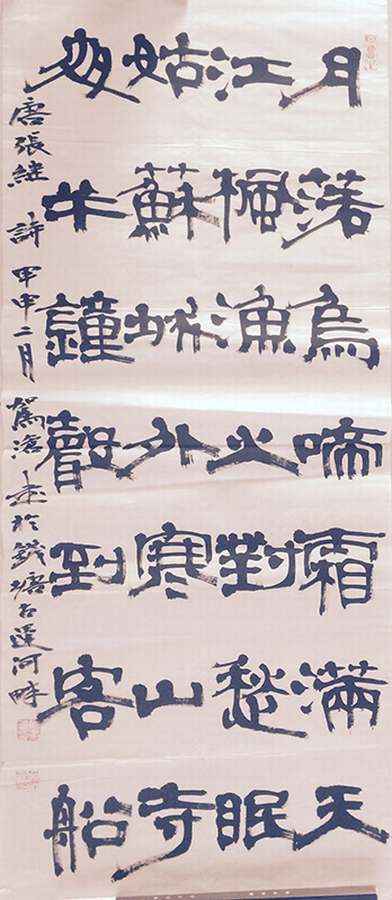 月落烏啼霜滿天
江楓漁火對愁眠
姑蘇城外寒山寺
夜半鐘聲到客船
唐張继詩甲申二月駕滄書於錢塘古運河畔